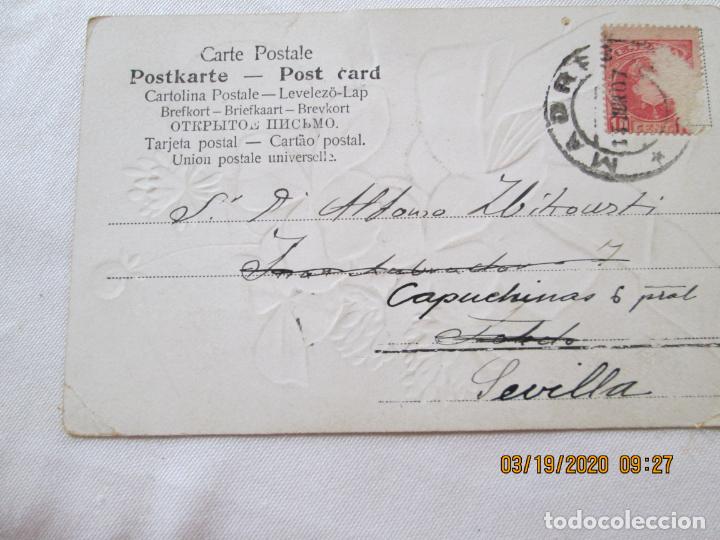 Carte Postale
Postkarte — Post card
Cartolina Postale — Levelező-Lap
Brefkort — Briefkaart — Brevkort
ОТКРЫТОЕ ПИСЬМО.
Tarjeta postal — Cartão postal.
Union postale universelle.
MADR
07
CENT
Sr Dn Alfonso
Labrador 7
Capuchinas 6 pral
Toledo
Sevilla
03/19/2020 09:27
todocoleccion.net